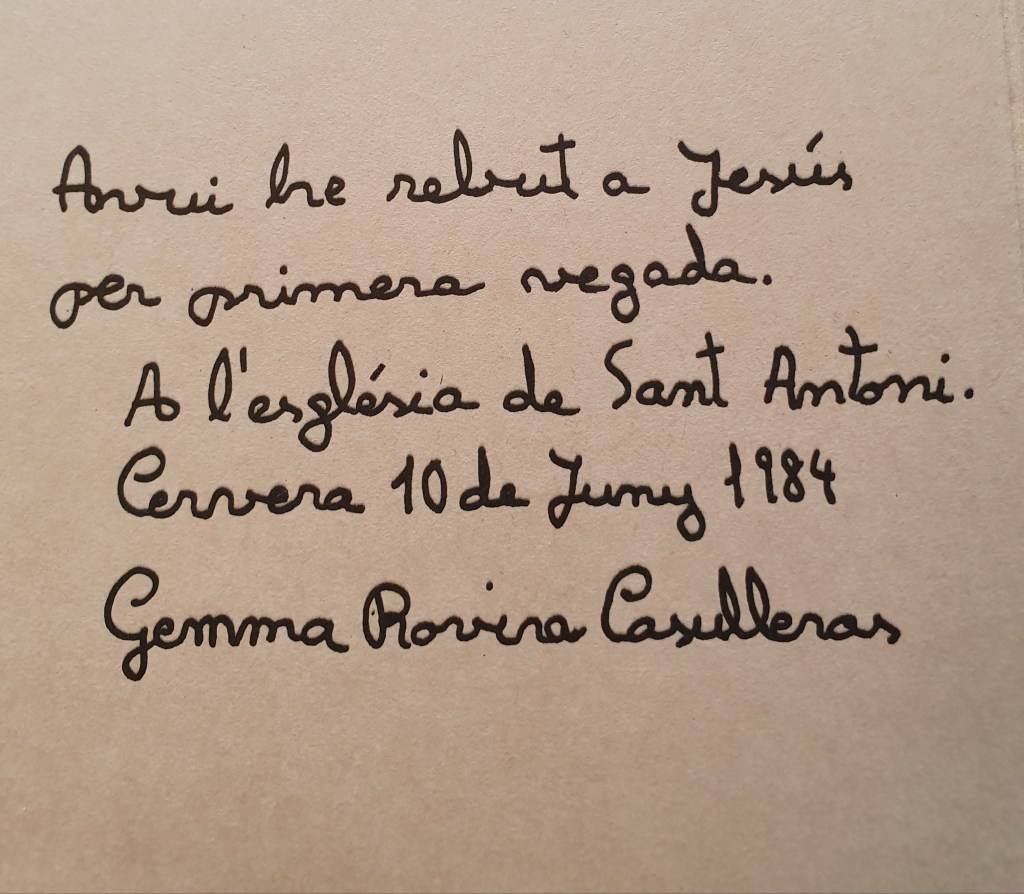 Avui he rebut a Jesús
per primera vegada.
A l'església de Sant Antoni.
Cervera 10 de Juny 1984
Gemma Rovira Casulleras